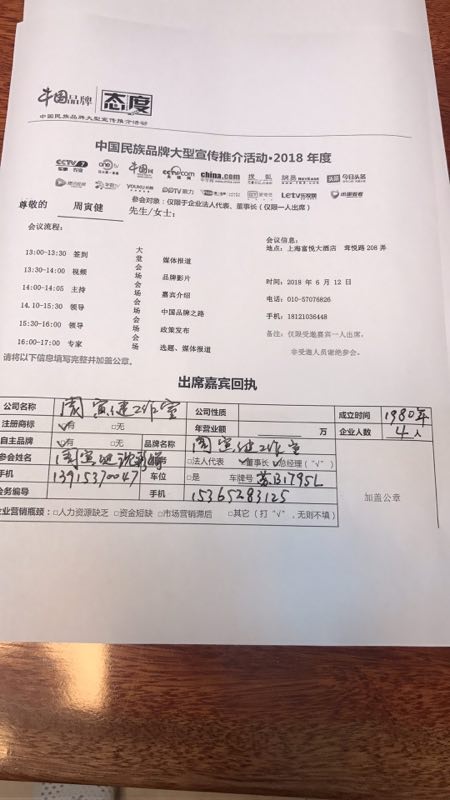 中国品牌 态度
中国民族品牌大型宣传推介活动
中国民族品牌大型宣传推介活动·2018 年度
CCTV 7 onetv 中国网 cctv.com china.com 搜狐 网易 NETEASE 头条 今日头条
YOUKU PPTV聚力 LeTV乐视网
尊敬的 周寅健 先生/女士： 参会对象：仅限于企业法人代表、董事长（仅限一人出席）
会议流程：
13:00-13:30 签到 大堂 媒体报道
13:30-14:00 视频 会场 品牌影片
14:00-14:05 主持 会场 嘉宾介绍
14.10-15:30 领导 会场 中国品牌之路
15:30-16:00 领导 会场 政策发布
16:00-17:00 专家 会场 选题、媒体报道
会议信息：
地点：上海富悦大酒店 茸悦路 208 弄
时间：2018 年 6 月 12 日
电话：010-57076826
手机：18121036448
备注：仅限受邀嘉宾一人出席，
非受邀人员谢绝参会。
请将以下信息填写完整并加盖公章。
出席嘉宾回执
公司名称 周寅健工作室 公司性质 成立时间 1980年
注册商标 ☑有 □无 年营业额 万 企业人数 4 人
自主品牌 ☑有 □无 品牌名称 周寅健工作室
参会姓名 周寅健 □法人代表 ☑董事长 ☑总经理（"√"）
手机 13915370047 车位 □是 车牌号 苏B1795L 加盖公章
会务编导 手机 15365283125
企业营销瓶颈：□人力资源缺乏 □资金短缺 □市场营销滞后 □其它（打"√"，无则不填）